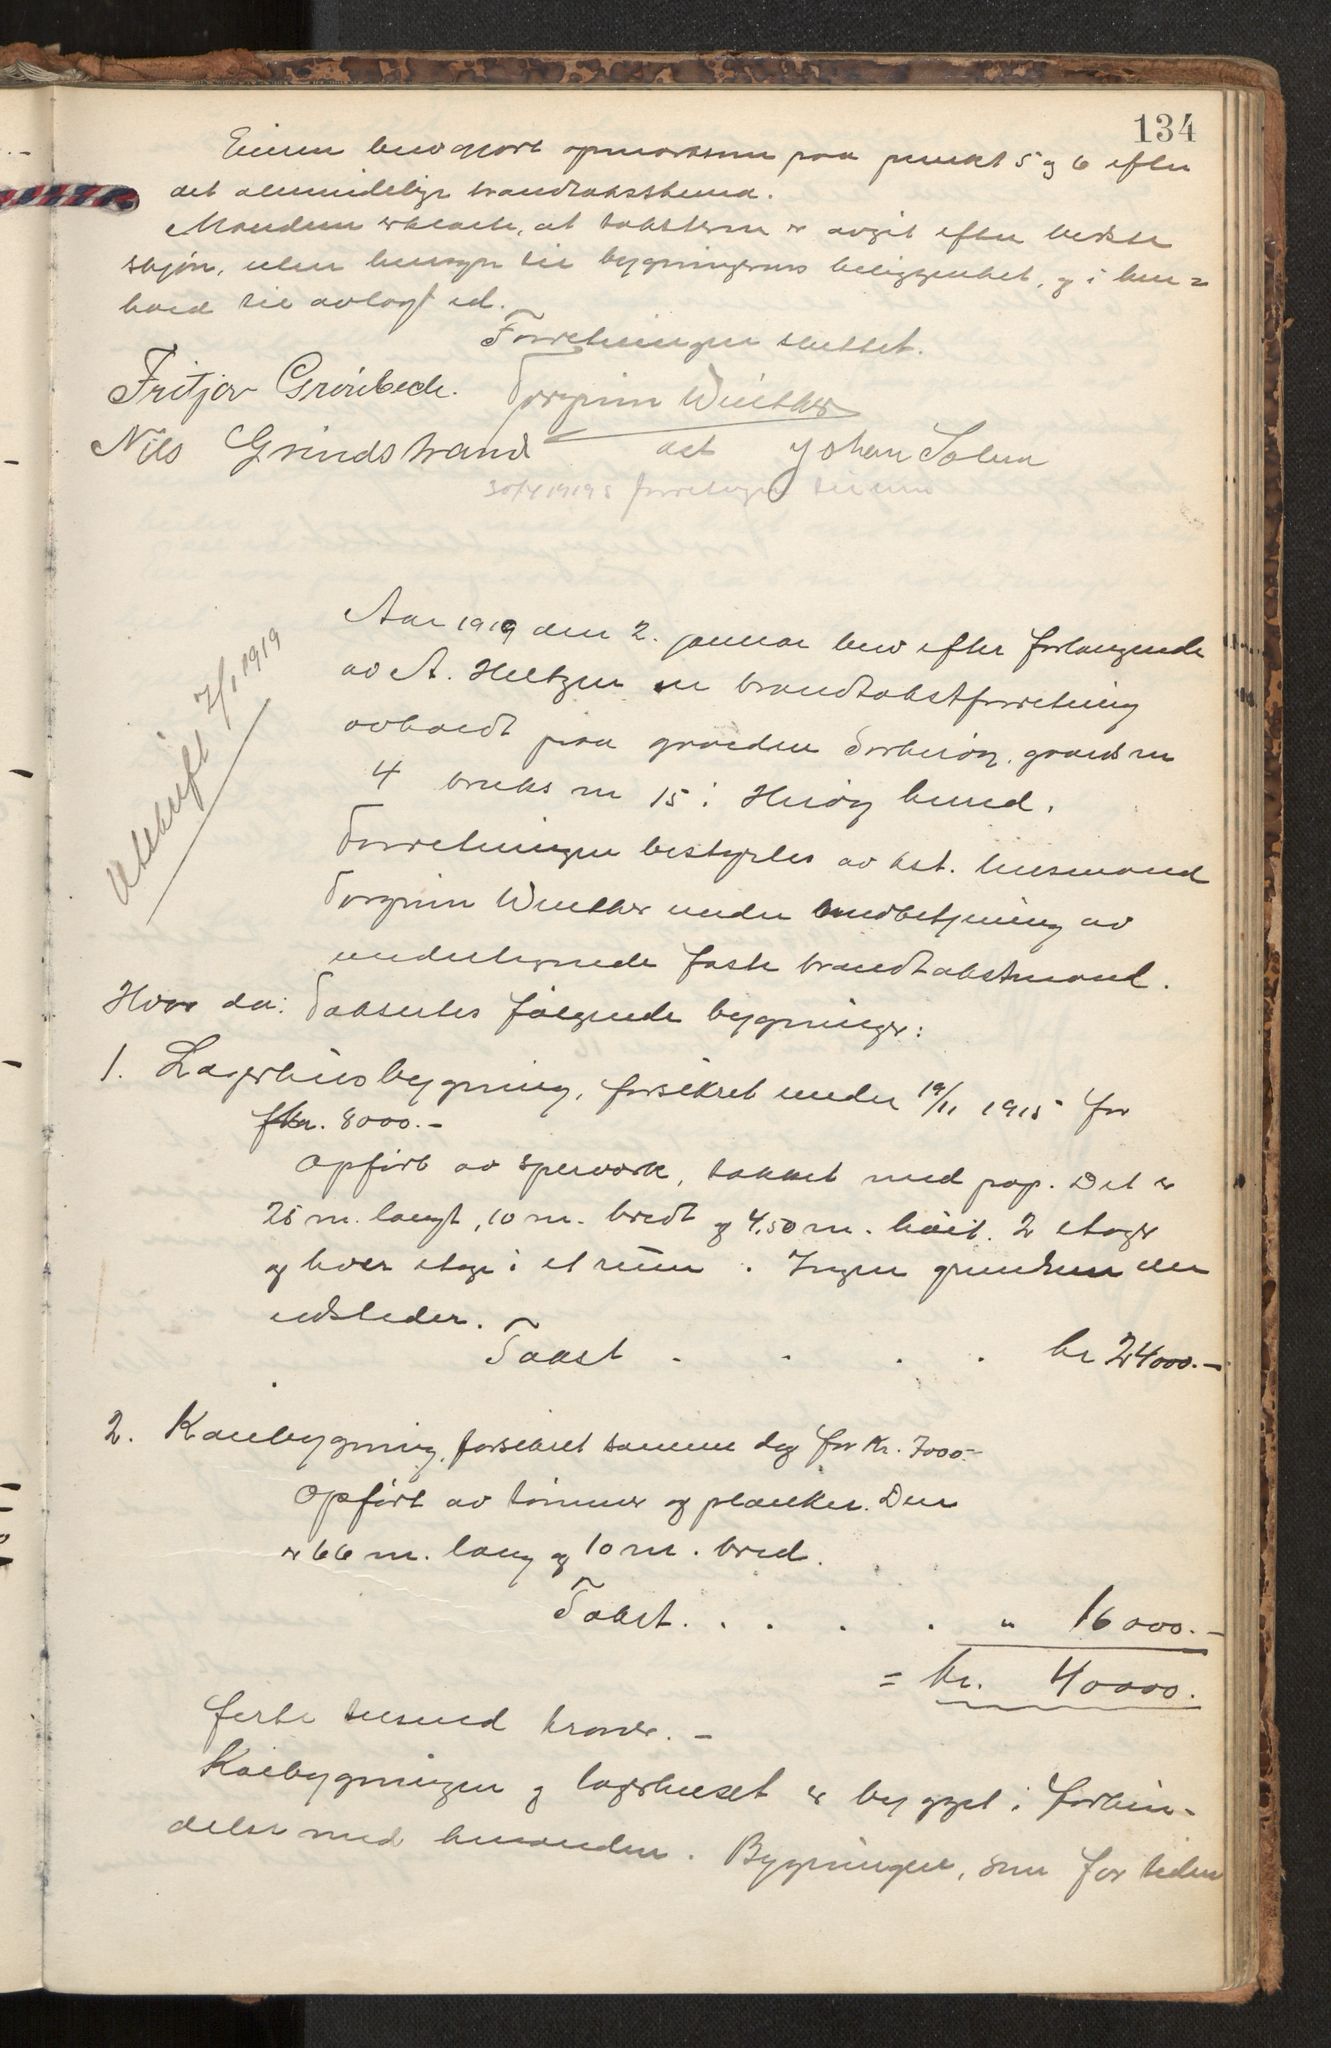 134
Eieren blev gjort opmerksom paa punkt 5 og 6 efter
det almindelige brandtakstskema.
Mændene erklærte, at taksterne er avgit efter bedste
skjøn, uten hensyn til bygningernes beliggenhet, og i hen=
hold til avlagt ed.
Forretningen sluttet.
Fritjov Grønbech. Torginn Winther
Nils Grindstrand act Johan Solem
30/4 1919 forretningen
Utskrift 7/1 1919
Aar 1919 den 2. januar blev efter forlangende
av A. Heltzen en brandtakstforretning
avholdt paa gaarden gaards nr
4 bruks nr 15 i Herøy herred.
Forretningen bestyrtes av kst. lensmand
Torginn Winther under medbetjening av
undertegnede faste brandtakstmænd.
Hvor da: Taksertes følgende bygninger:
1. Lagerhusbygning, forsikret under 19/11 1915 for
kr. 8000.-
Opført av sperverk, takket med pap. Det er
25 m. langt, 10 m. bredt og 4,50 m. høit. 2 etager
og hver etage i et rum. Ingen grundmur eller
ildsteder.
Takst . . . . kr 24000.-
2. Kaibygning, forsikret samme dag for Kr. 7000.-
Opført av tømmer og planker. Den
er 66 m. lang og 10 m. bred.
Takst. . . . . " 16000.-
= kr. 40000.
førti tusend kroner. -
Kaibygningen og lagerhuset er bygget i forbin-
delse med hinanden. Bygningen, som for tiden